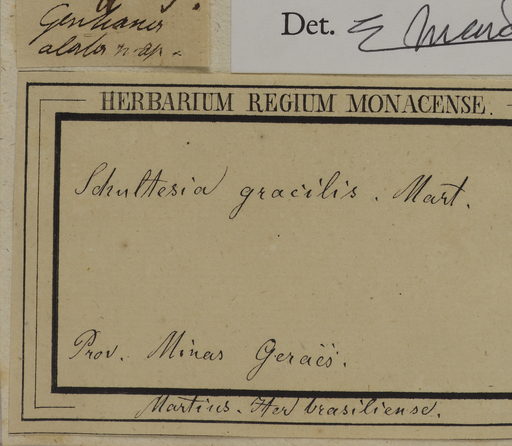 Det. E
HERBARIUM REGIUM MONACENSE.
Schultesia gracilis. Mart.
Prov. Minas Geraës.
Martius. Iter brasiliense.